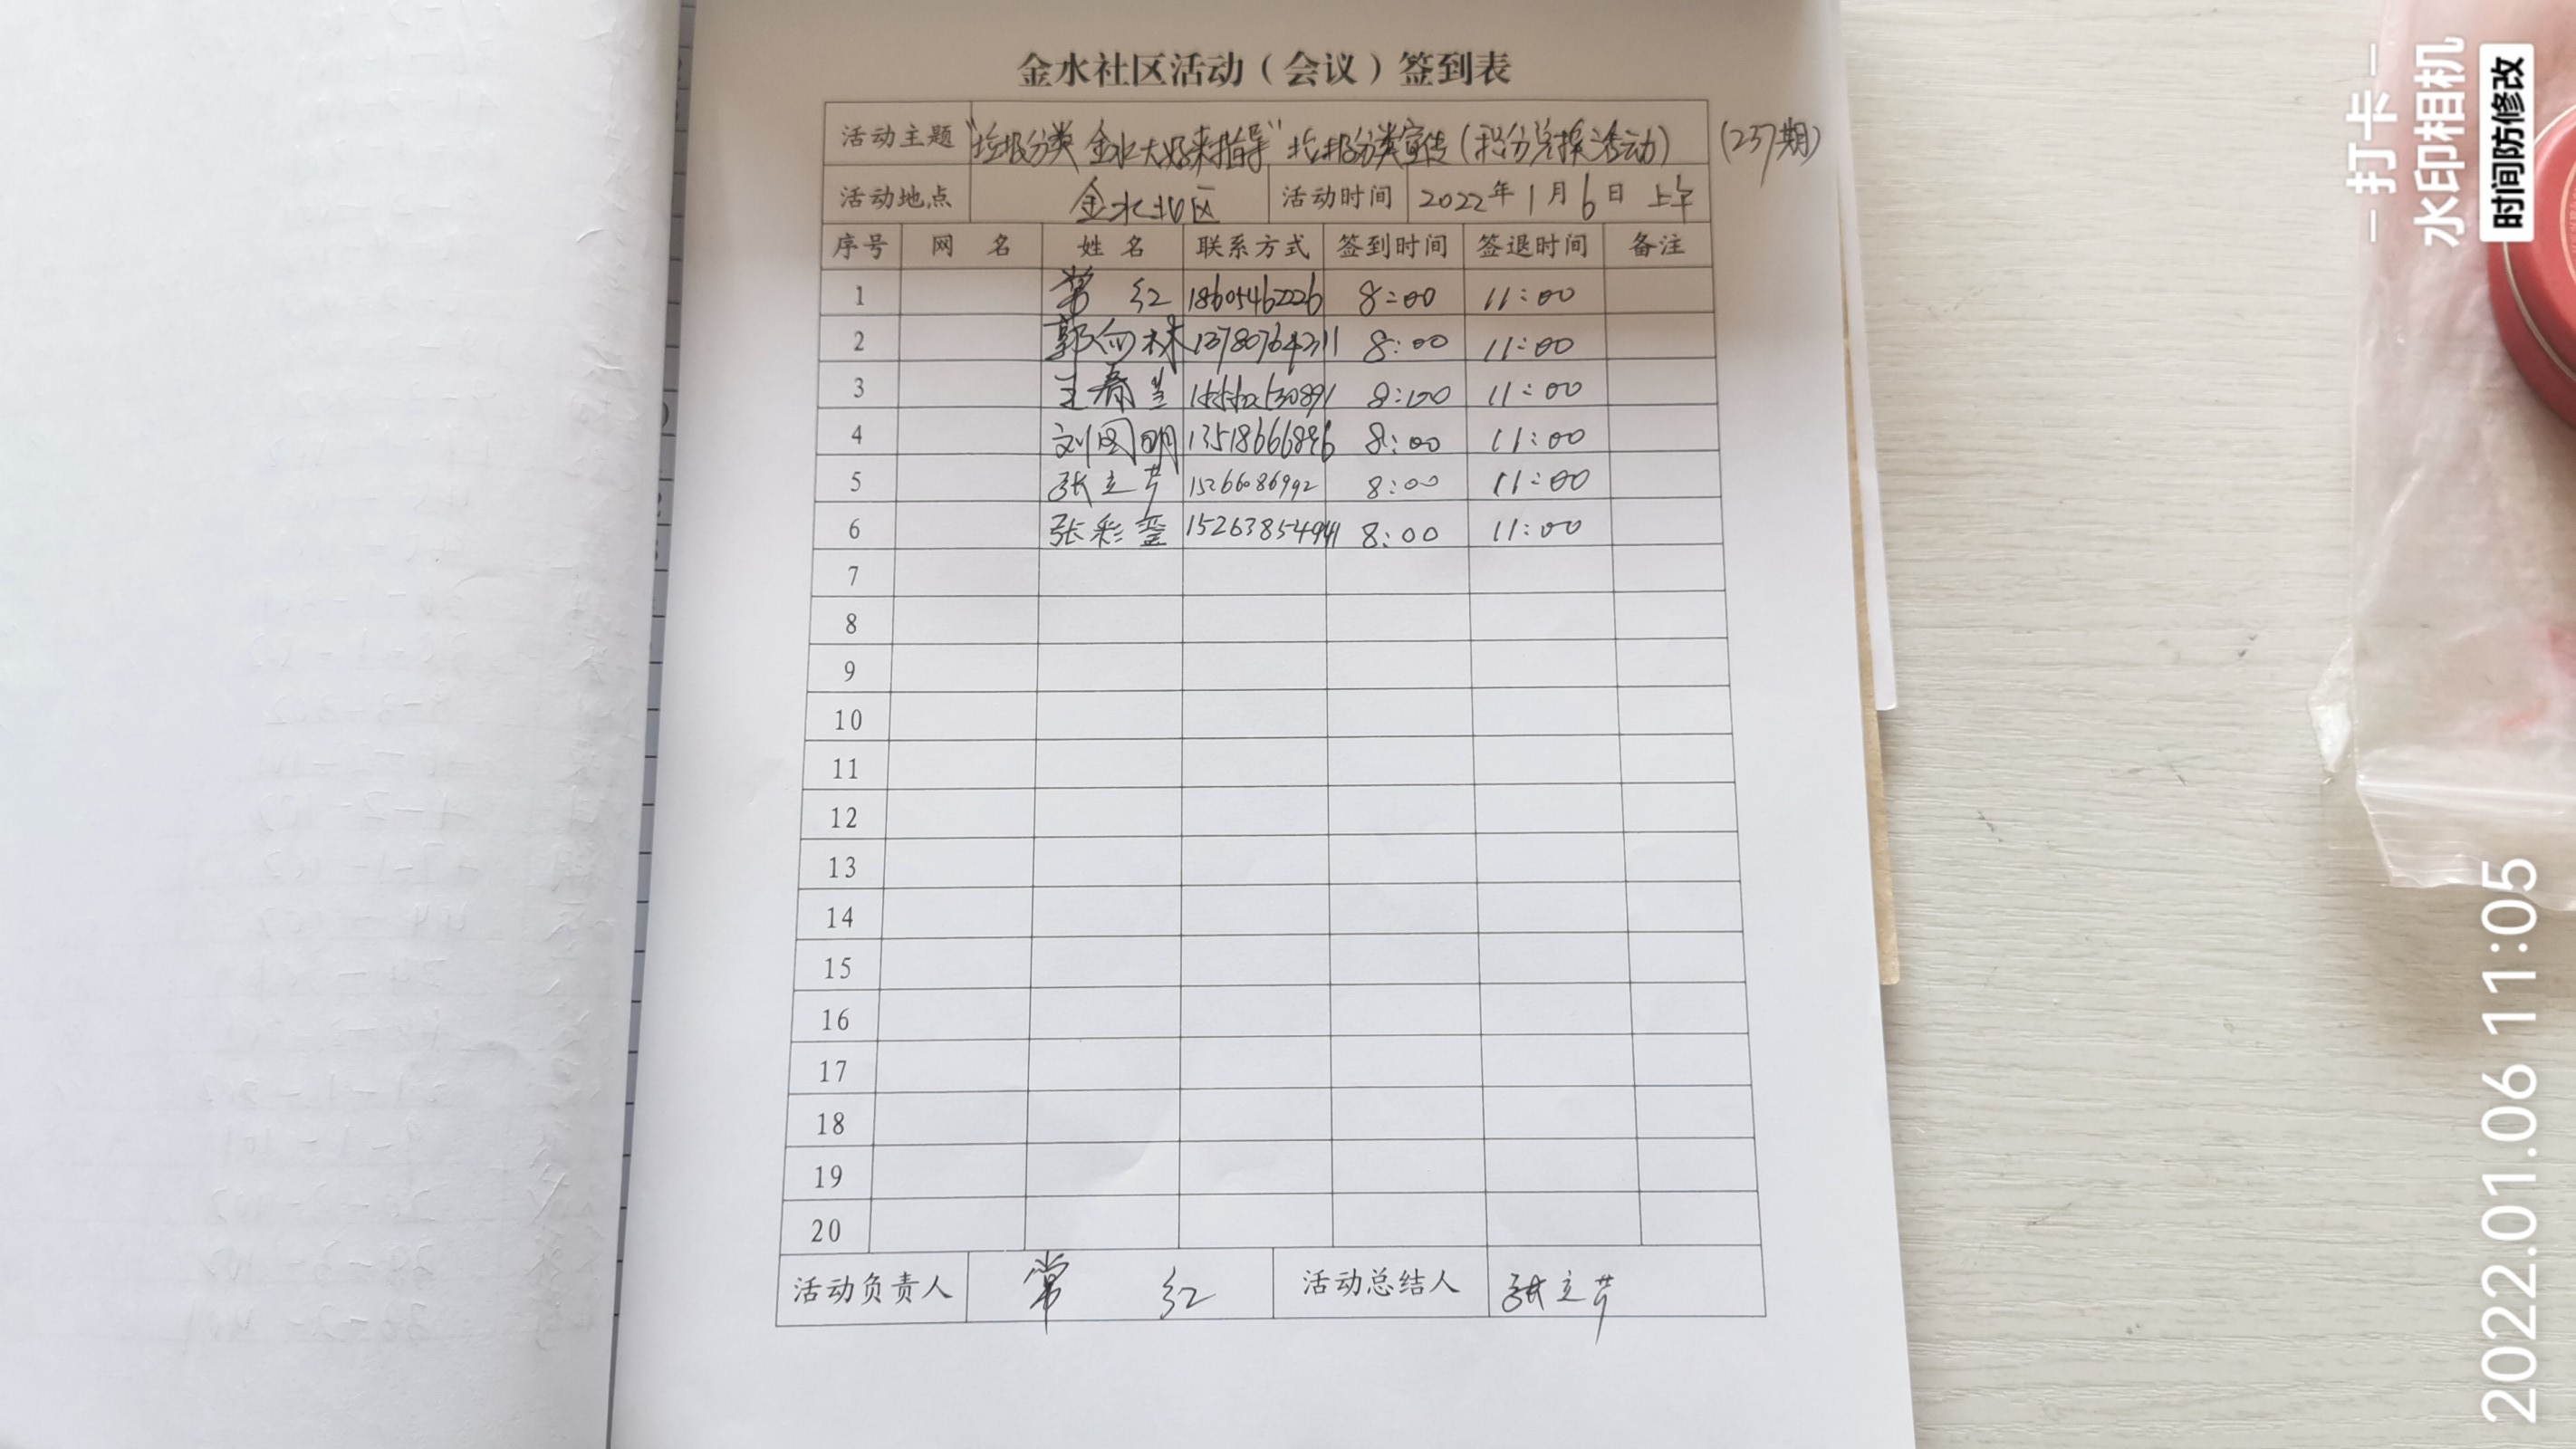 金水社区活动（会议）签到表
活动主题 "垃圾分类 金水大好来指导"垃圾分类宣传(积分兑换活动) (237期)
活动地点 金水北区 活动时间 2022年1月6日 上午
序号 网 名 姓 名 联系方式 签到时间 签退时间 备注
1 常 红 18605462226 8:00 11:00
2 郭向林 13780764311 8:00 11:00
3 王春兰 8:00 11:00
4 刘国明 13518666896 8:00 11:00
5 张立芹 15266086992 8:00 11:00
6 张彩 15263854941 8:00 11:00
7
8
9
10
11
12
13
14
15
16
17
18
19
20
活动负责人 常 红 活动总结人 张立芹
打卡
水印相机
时间防修改
2022.01.06 11:05